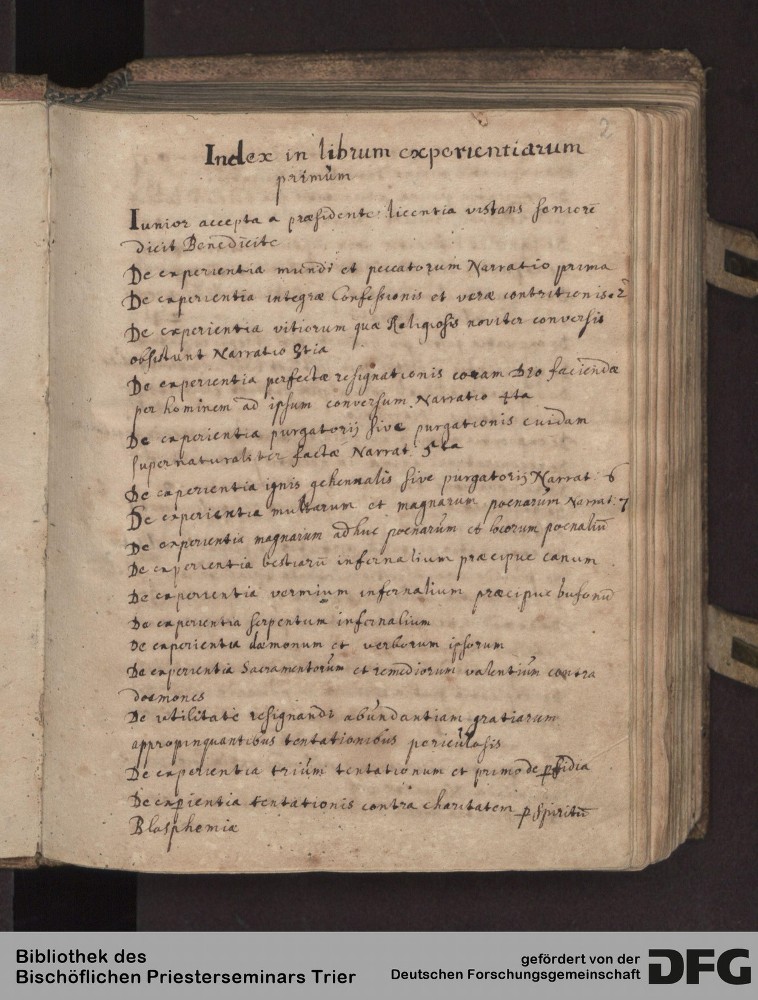 2
Index in librum experientiarum
primùm
Iunior accepta a præsidente licentia visitans seniorē
dicit Benedicite
De experientia mundi et peccatorum Narratio prima
De experientia integræ Confessionis et veræ contritionis 2
De experientia vitiorum quæ Religiosis noviter conversis
obsistunt Narratio 3tia
De experientia perfectæ resignationis coram Deo faciendæ
per hominem ad ipsum conversum Narratio 4ta
De experientia purgatorij sive purgationis cuidam
supernaturaliter factæ Narrat. 5ta
De experientia ignis gehennalis sive purgatorij Narrat. 6
De experientia multarum et magnarum poenarum Narrat. 7
De experientia magnarum adhuc poenarum et locorum poenaliū
De experientia bestiarū infernalium præcipue canum
De experientia vermium infernalium præcipue bufonū
De experientia serpentum infernalium
De experientia dæmonum et verborum ipsorum
De experientia Sacramentorum et remediorum valentium contra
dæmones
De utilitate resignandi abundantiam gratiarum
appropinquantibus tentationibus periculosis
De experientia trium tentationum et primo de pfidia
De expientia tentationis contra charitatem p Spiritū
Blasphemiæ
Bibliothek des
Bischöflichen Priesterseminars Trier
gefördert von der
Deutschen Forschungsgemeinschaft
DFG